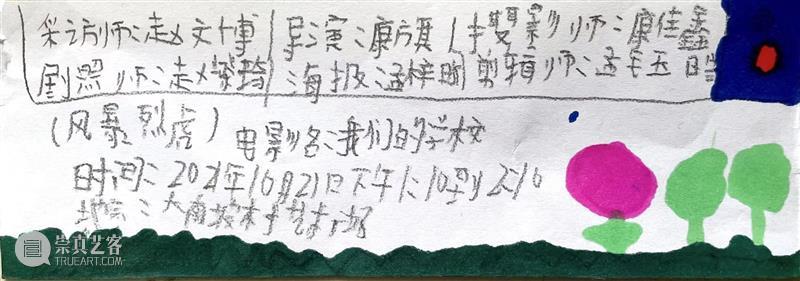 采访师:赵文博 导演:康旗 摄影师:康佳鑫
剧照师:赵紫琦 海报孟梓 剪辑师:孟毛玉
(风暴烈虎) 电影名:我们的学校
时间:2021年10月21日下午1:10到2:10
地点:大南坡 艺术
崇真艺客
TRUEART.COM